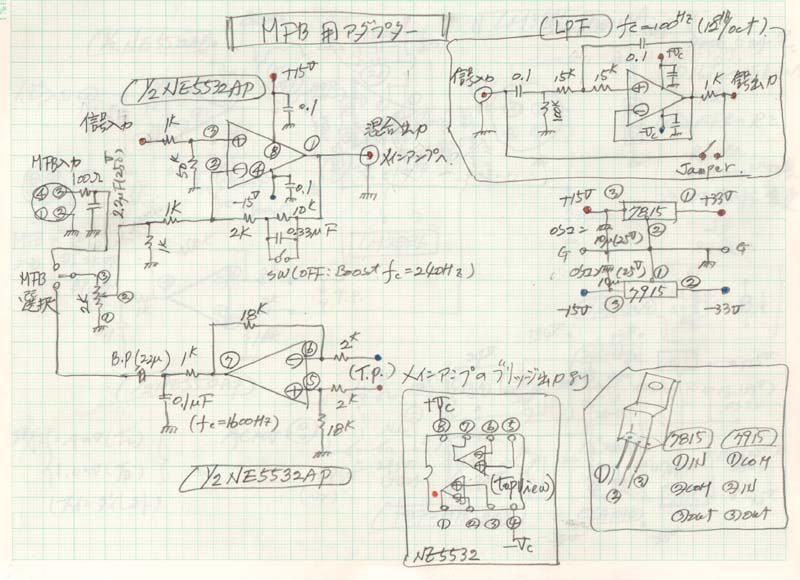 MFB用アダプター
(LPF) fc=100Hz (12dB/oct)
+Vc
0.1
信号入力
0.1
15K
15K
-Vc
1K
信号出力
Jamper.
+15V
1/2 NE5532AP
0.1
信号入力
1K
50K
③
②
⑧
④
①
混合出力
メインアンプへ
-15V
0.1
MFB入力
100Ω
22μF(25V)
④③
①②
1K
1K
2K
10K
0.33μF
SW(OFF:Boost fc=240Hz)
MFB
選択
2K
③
②
①
18K
B.P(22μ)
1K
⑦
⑥
⑤
2K
(T.P.)
2K
18K
0.1μF
(fc=1600Hz)
1/2 NE5532AP
メインアンプのブリッジ出力より
+15V
③
7815
①
+33V
OSコン
10μ(25V)
②
G
G
OSコン
10μ(25V)
①
-15V
③
7915
②
-33V
+Vc
⑧⑦⑥⑤
(top view)
①②③④
-Vc
NE5532
①
②
③
7815
7915
①IN
①COM
②COM
②IN
③out
③out